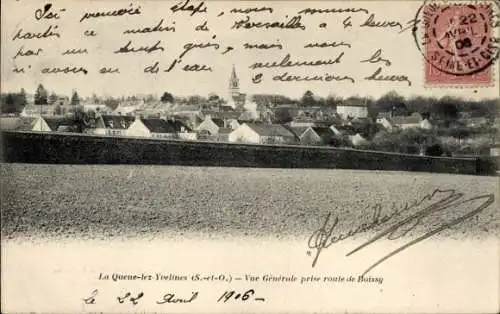 première étape, nous
sommes
Versailles à 4 heures
partis ce matin de
du soir un peu
gris, mais nous
n avons eu de l'eau
seulement les
2 dernières heures
22
AVRIL
06
SEINE-ET-OISE
La Queue-lez-Yvelines (S.-et-O.) — Vue Générale prise route de Boissy
le 22 Avril 1906 —